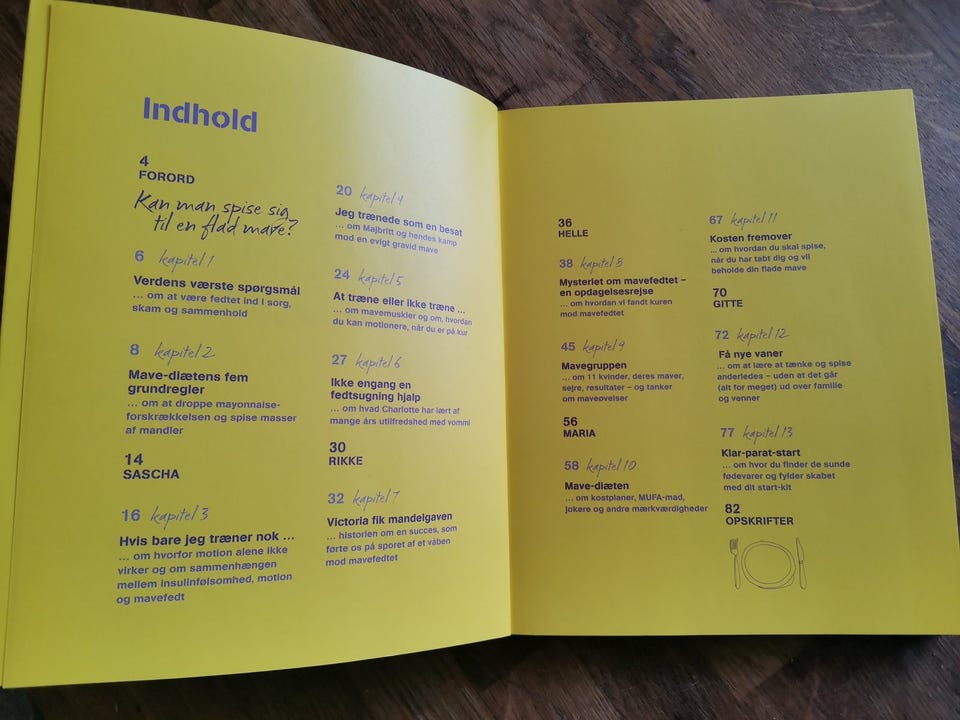 Indhold
4
FORORD
Kan man spise sig
til en flad mave?
6 kapitel 1
Verdens værste spørgsmål
... om at være fedtet ind i sorg,
skam og sammenhold
8 kapitel 2
Mave-diætens fem
grundregler
... om at droppe mayonnaise-
forskrækkelsen og spise masser
af mandler
14
SASCHA
16 kapitel 3
Hvis bare jeg træner nok ...
... om hvorfor motion alene ikke
virker og om sammenhængen
mellem insulinfølsomhed, motion
og mavefedt
20 kapitel 4
Jeg trænede som en besat
... om Majbritt og hendes kamp
mod en evigt gravid mave
24 kapitel 5
At træne eller ikke træne ...
... om mavemuskler og om, hvordan
du kan motionere, når du er på kur
27 kapitel 6
Ikke engang en
fedtsugning hjalp
... om hvad Charlotte har lært af
mange års utilfredshed med vommen
30
RIKKE
32 kapitel 7
Victoria fik mandelgaven
... historien om en succes, som
førte os på sporet af et våben
mod mavefedtet
36
HELLE
38 kapitel 8
Mysteriet om mavefedtet –
en opdagelsesrejse
... om hvordan vi fandt kuren
mod mavefedtet
45 kapitel 9
Mavegruppen
... om 11 kvinder, deres maver,
sejre, resultater – og tanker
om maveøvelser
56
MARIA
58 kapitel 10
Mave-diæten
... om kostplaner, MUFA-mad,
jokere og andre mærkværdigheder
67 kapitel 11
Kosten fremover
... om hvordan du skal spise,
når du har tabt dig og vil
beholde din flade mave
70
GITTE
72 kapitel 12
Få nye vaner
... om at lære at tænke og spise
anderledes – uden at det går
(alt for meget) ud over familie
og venner
77 kapitel 13
Klar-parat-start
... om hvor du finder de sunde
fødevarer og fylder skabet
med dit start-kit
82
OPSKRIFTER